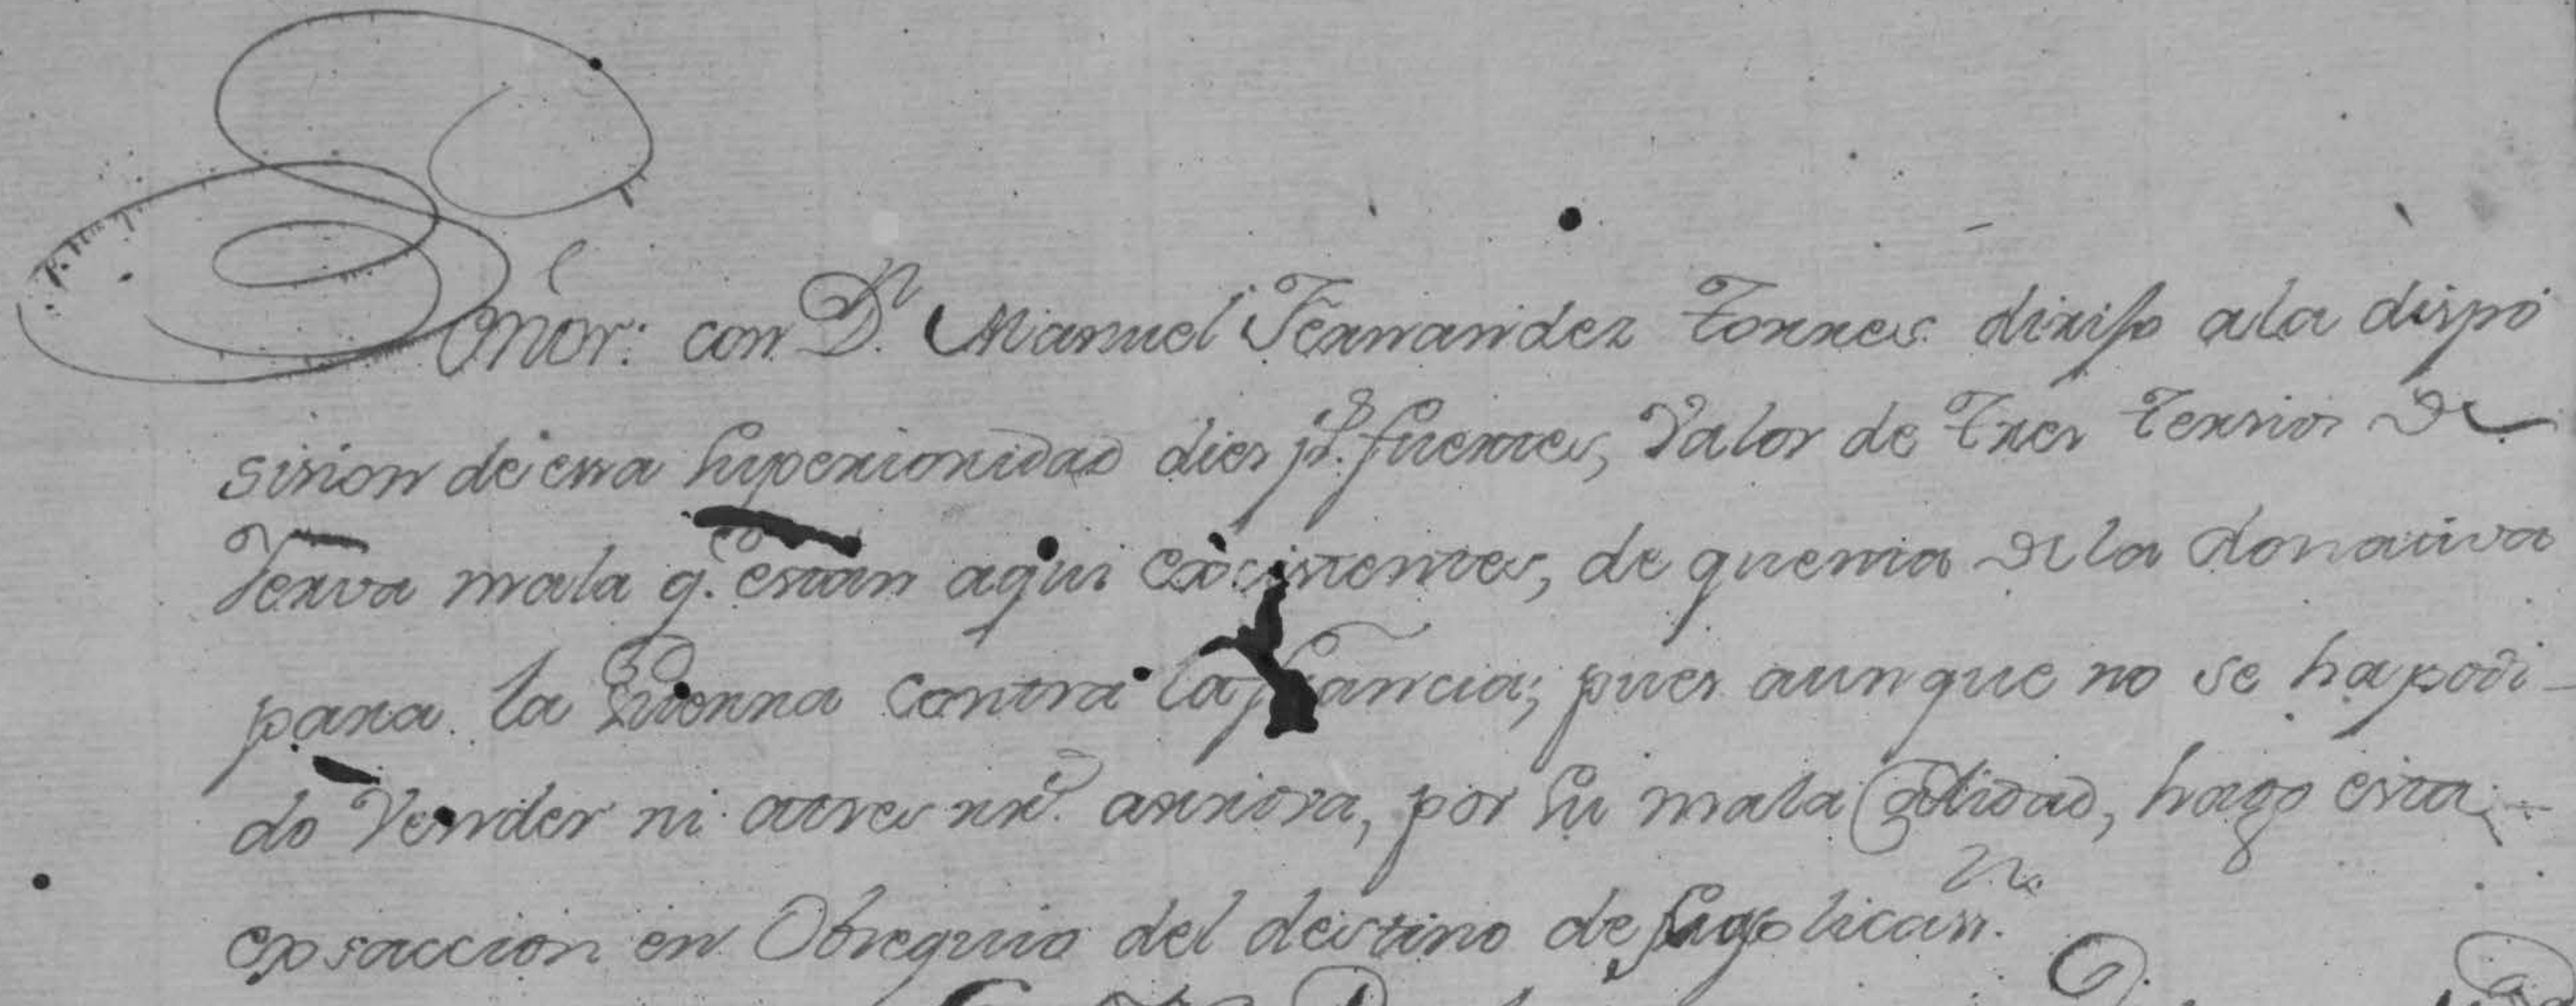 Señor: con Dn. Manuel Fernandez Torres dirijo ala dispo
sision de essa Superioridad dies ps. fuertes, Valor de tres tersios de
Yerva mala q.e estan aqui excistentes, de quenta de la donativa
para la Guerra contra la francia; pues aunque no se ha podi-
do Vender ni atres rr.s arrova, por su mala Calidad, hago esta
exsaccion en Obsequio del destino de su aplicasn.